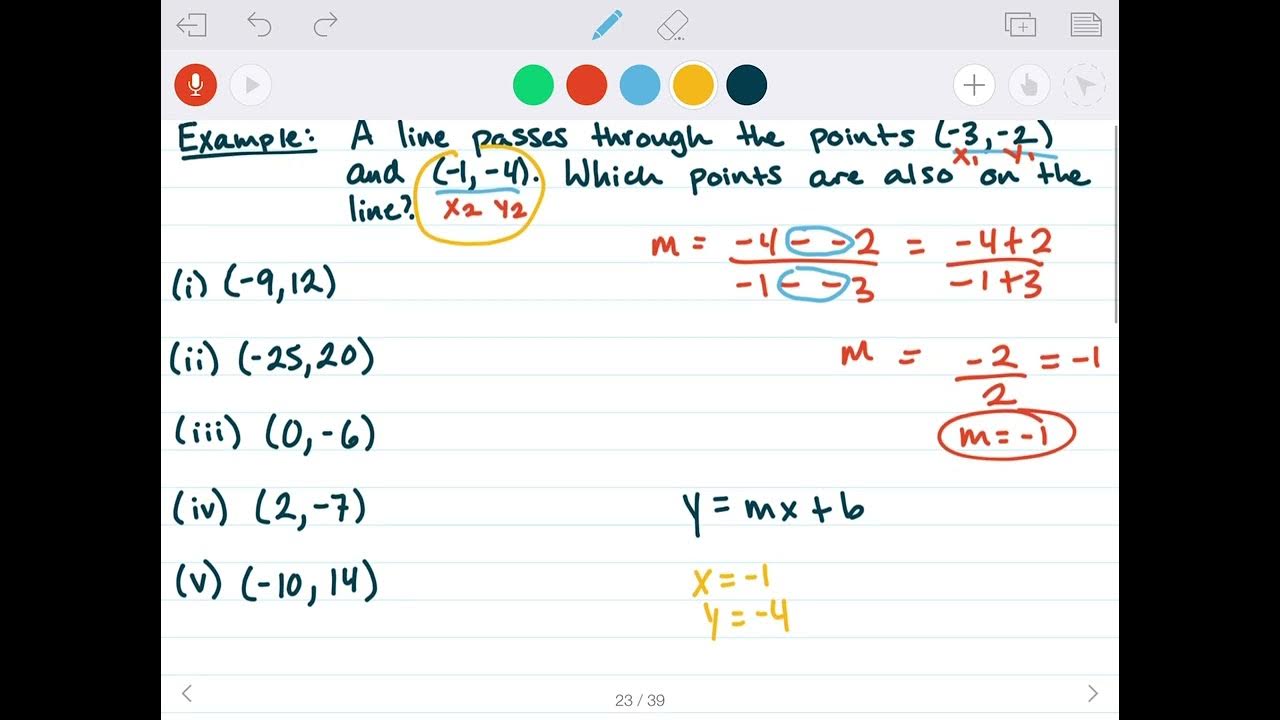 Example: A line passes through the points (-3,-2)
x₁ y₁
and (-1,-4). Which points are also on the
line? x2 y2
m = -4 - -2 / -1 - -3 = -4+2 / -1+3
(i) (-9,12)
(ii) (-25,20)
m = -2/2 = -1
(iii) (0,-6)
m=-1
(iv) (2,-7)
y = mx + b
(v) (-10,14)
x = -1
y = -4
23 / 39